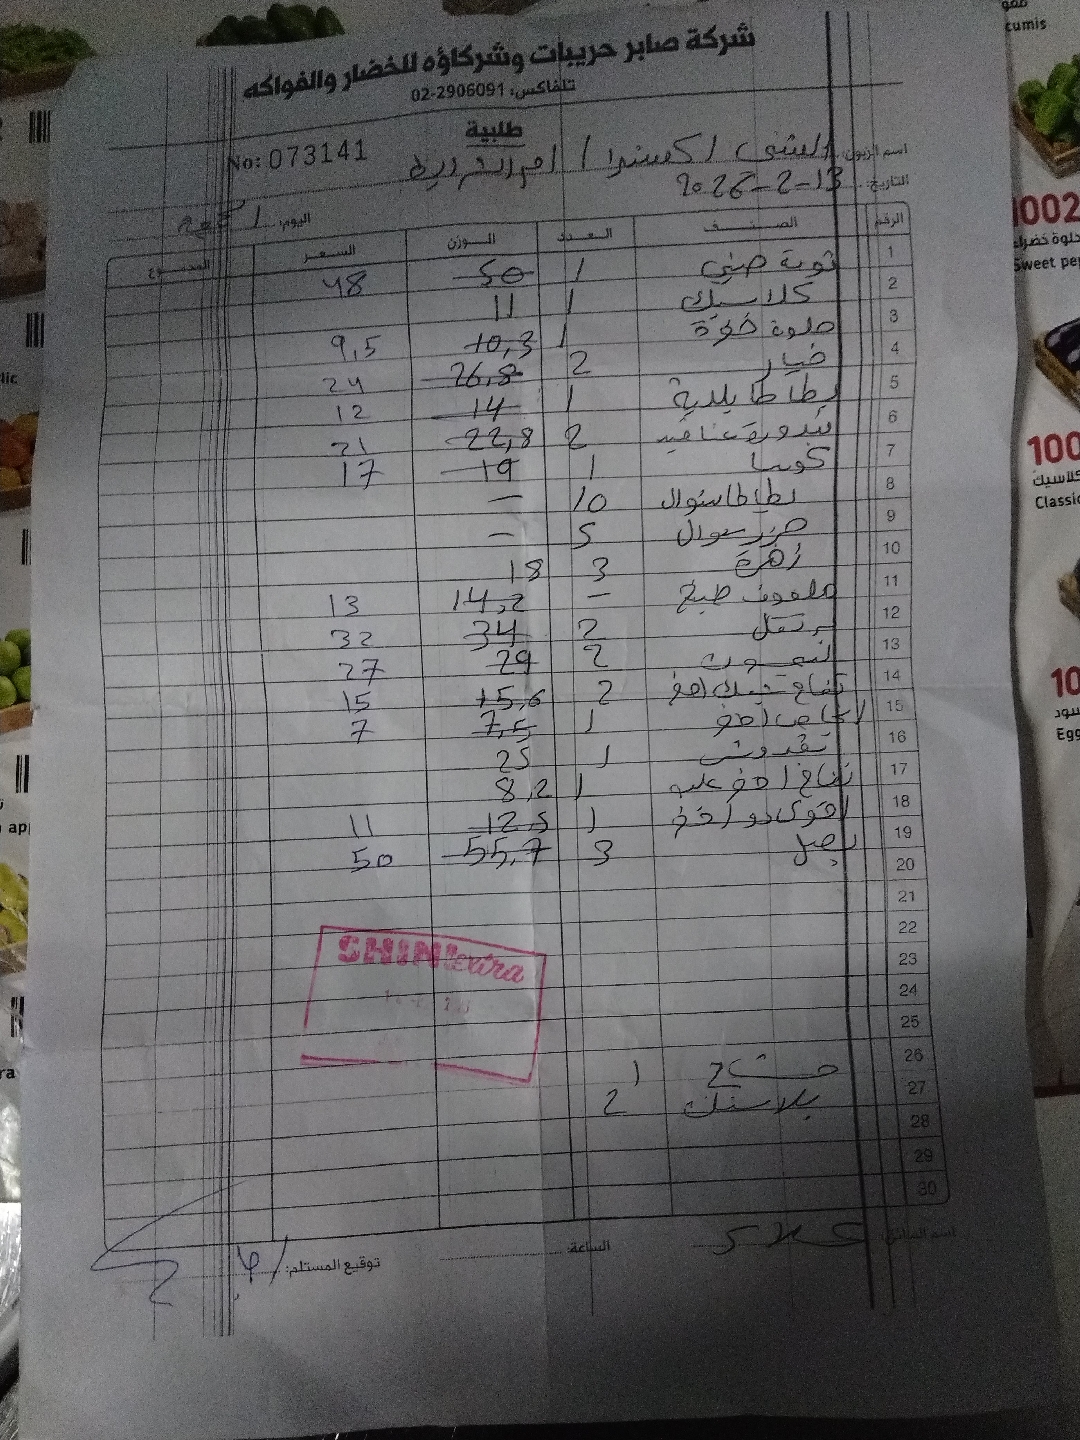 شركة صابر حريبات وشركاؤه للخضار والفواكه
تلفاكس: 02-2906091
طلبية
No: 073141
اسم الزبون: الشني اكسترا / ام الشرايط
التاريخ: 13-2-2026
اليوم: الجمعة
الرقم الصنف العدد الوزن السعر المجموع
1 ثومة صيني 1 50 48
2 كلاسيك 1 11
3 حلوة خضرة 1 10,3 9,5
4 خيار 2 26,8 24
5 بطاطا بلدية 1 14 12
6 بندورة عناقيد 2 22,8 21
7 كوسا 1 19 17
8 بطاطا شوال 10 -
9 جزر شوال 5 -
10 زهرة 3 18
11 ملفوف طبخ - 14,2 13
12 برتقال 2 34 32
13 ليمون 2 29 27
14 تفاح احمر 2 15,6 15
15 اجاص احمر 1 7,5 7
16 بقدونس 1 25
17 تفاح اخضر علب 1 8,2
18 افوكادو اخضر 1 12,5 11
19 بصل 3 55,7 50
20
21
22
23
24
25
26 مشاح 1
27 بلاستك 2
28
29
30
SHINI extra
اسم السائق:
الساعة:
توقيع المستلم:
cumis
1002
حلوة خضراء
Sweet pe
100
كلاسيك
Classic
10
سود
Egg
lic
ap
ra